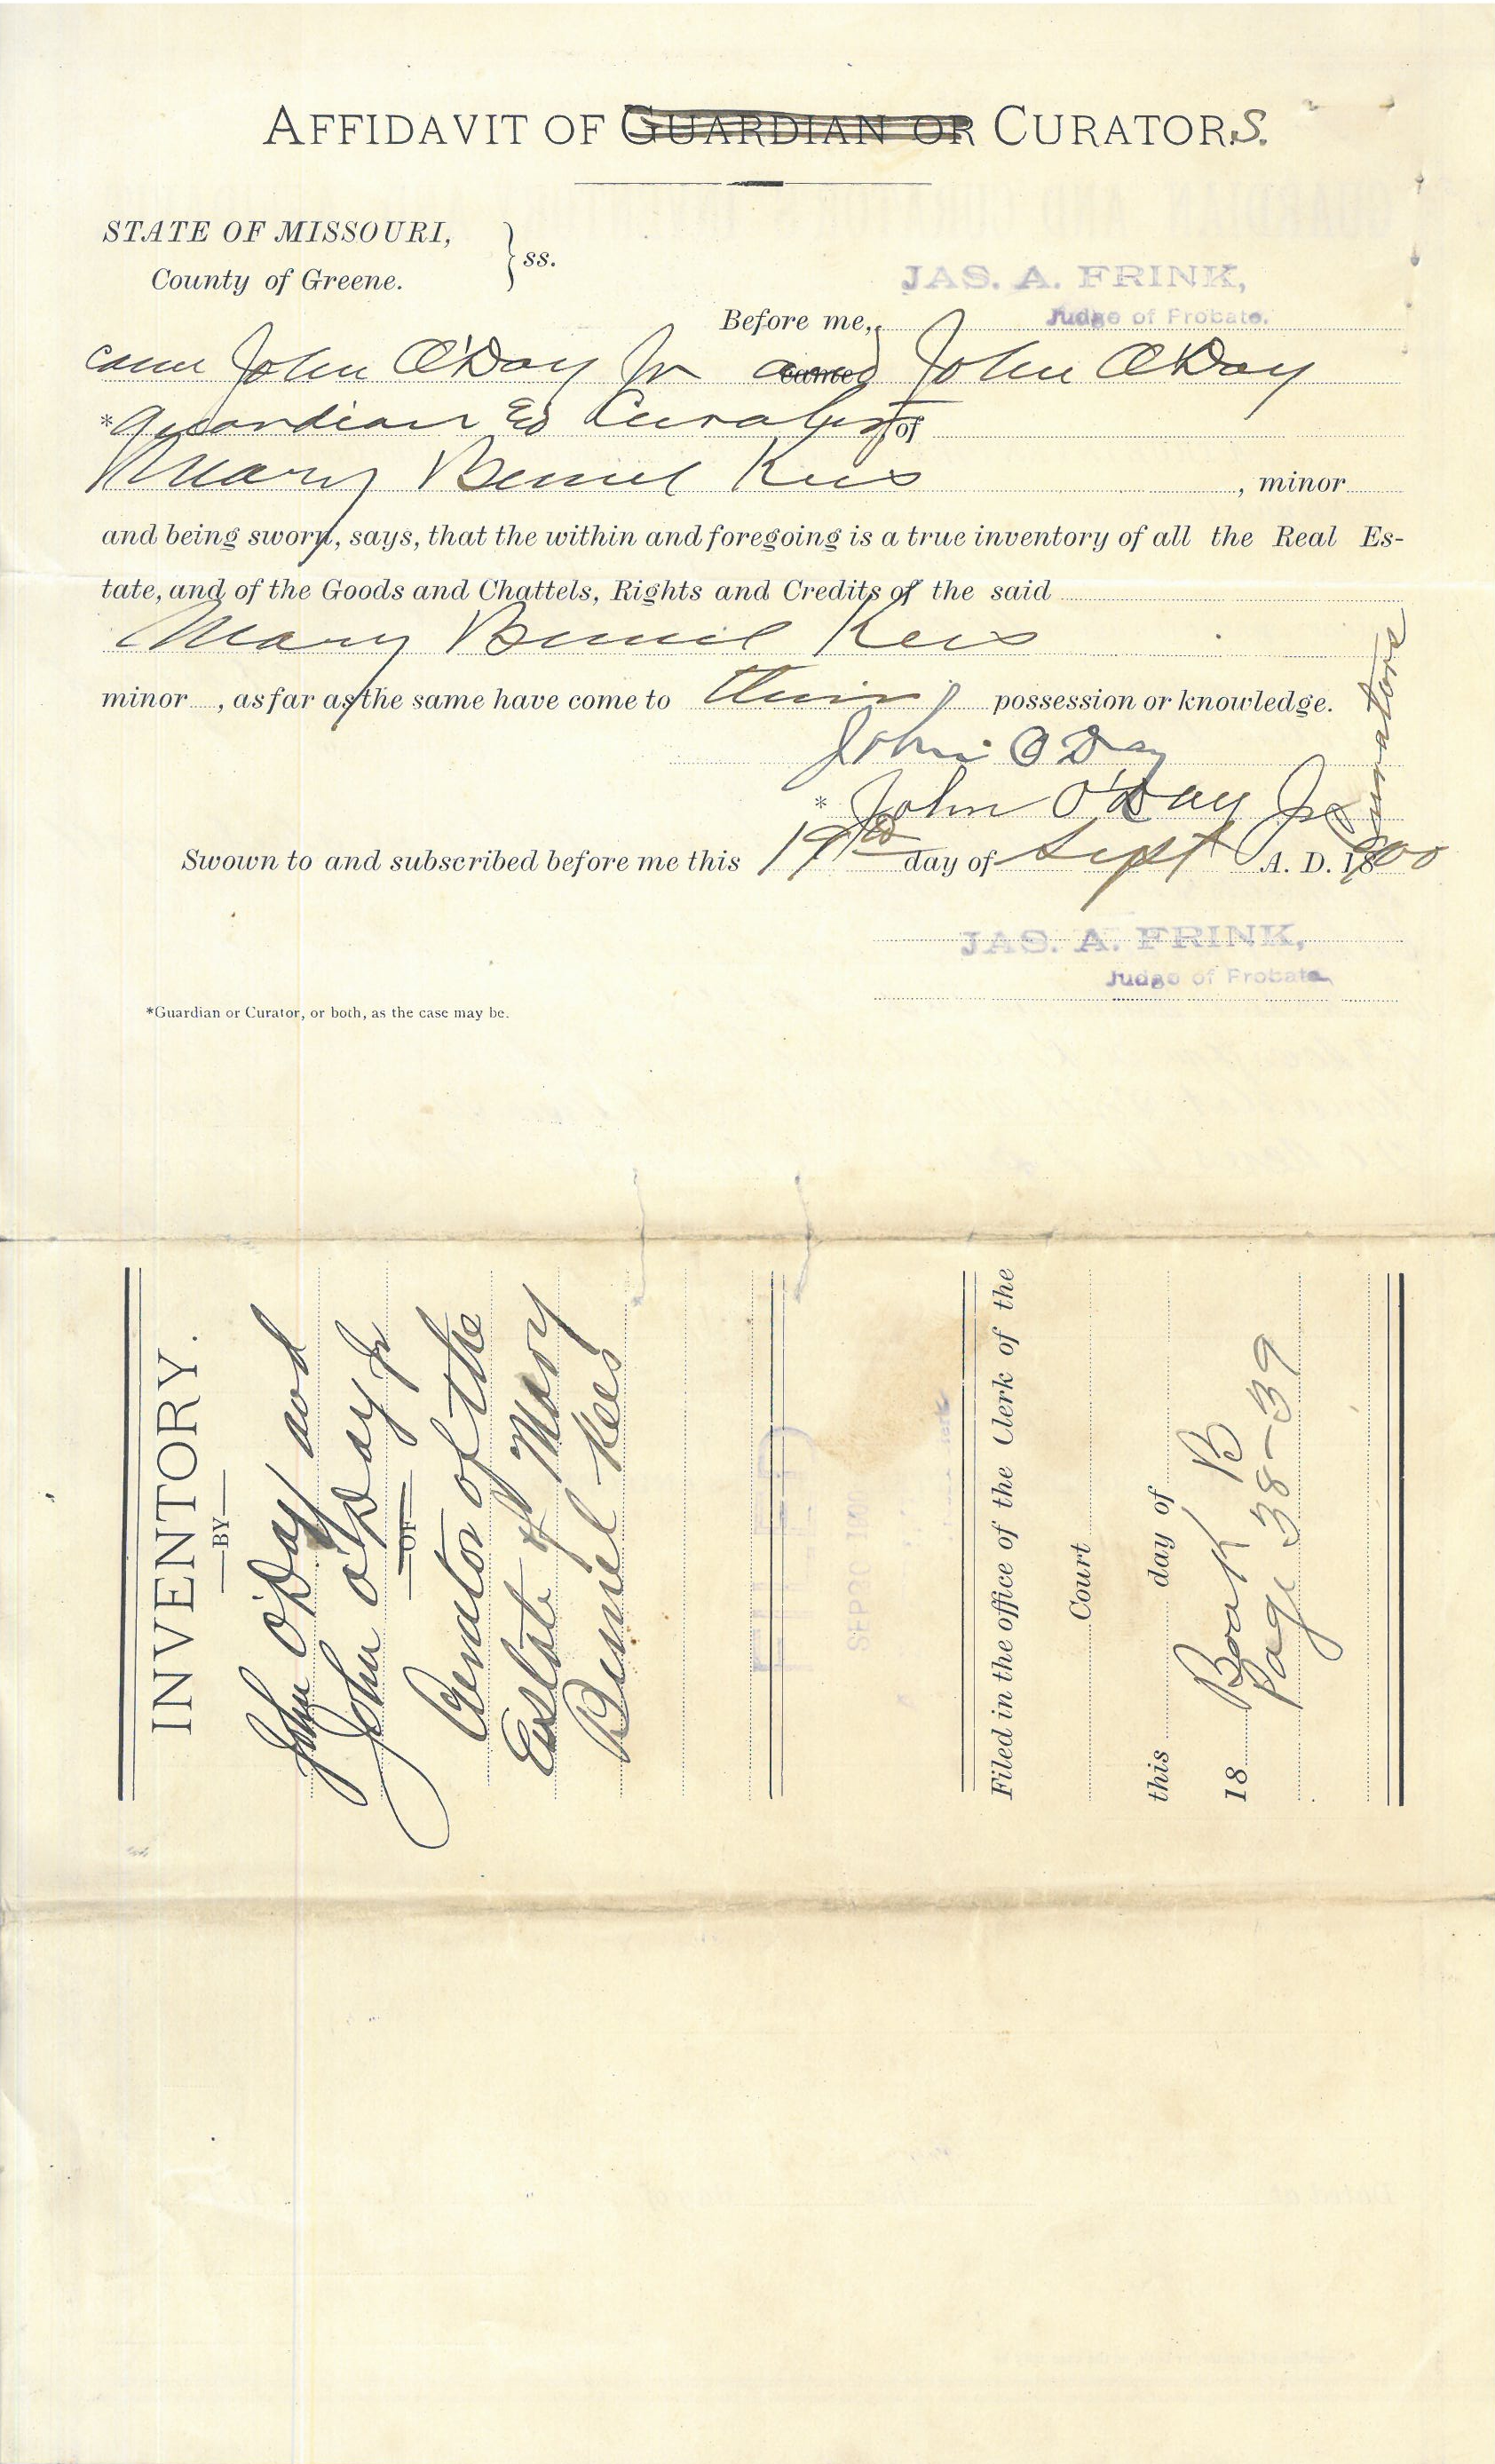 AFFIDAVIT OF GUARDIAN OR CURATORS.
STATE OF MISSOURI,
County of Greene. } ss.
JAS. A. FRINK,
Judge of Probate.
Before me,
came John O'Day Jr and John O'Day
*Guardian Ed Curators of
Mary Bemiel Kees, minor
and being sworn, says, that the within and foregoing is a true inventory of all the Real Es-
tate, and of the Goods and Chattels, Rights and Credits of the said
Mary Bemiel Kees
minor , as far as the same have come to their possession or knowledge.
John O'Day
* John O'Day Jr
Curators
Swown to and subscribed before me this 19th day of Sept A. D. 1900
JAS. A. FRINK,
Judge of Probate
*Guardian or Curator, or both, as the case may be.
INVENTORY.
BY
John O'Day and
John O'Day Jr
OF
Curator of the
Estate of Mary
Bemiel Kees
FILED
SEP 30 1900
Filed in the office of the Clerk of the
Court
this day of
18
Book B
Page 38-39